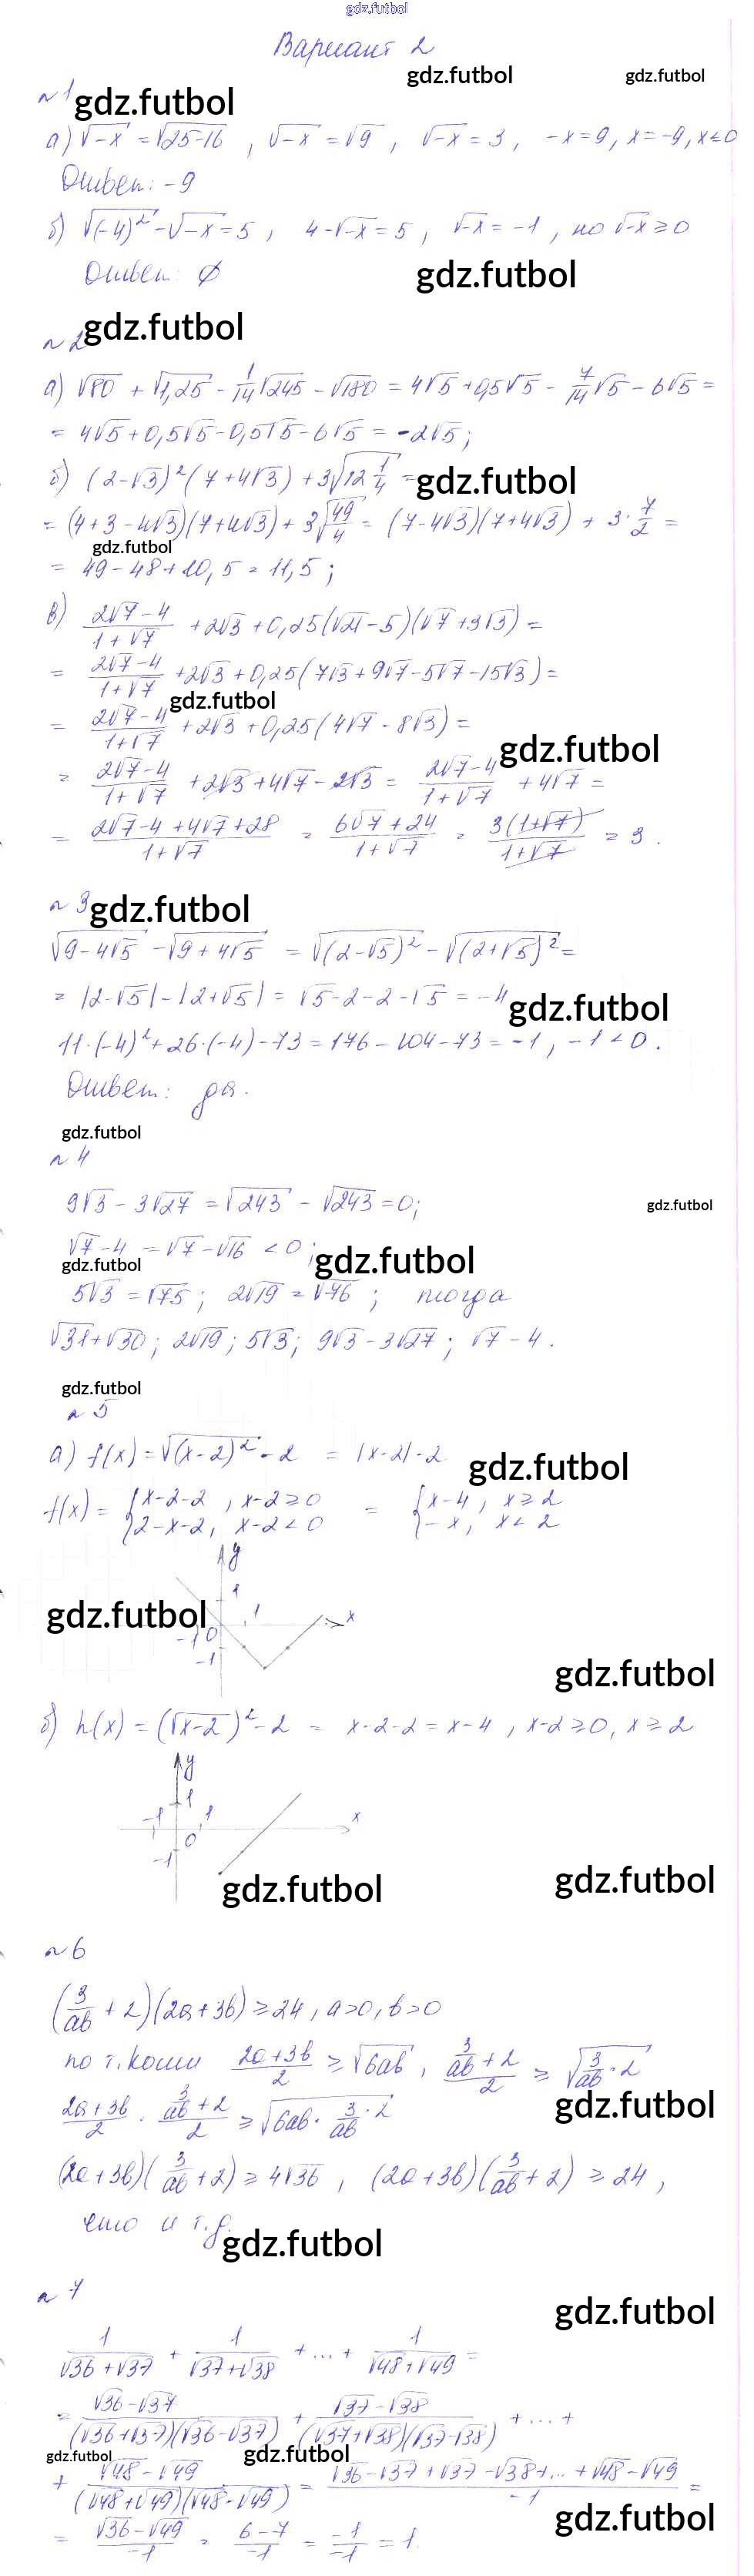 gdz.futbol
Вариант 2
gdz.futbol gdz.futbol
№1 gdz.futbol
а) √-x = √25-16 , √-x = √9 , √-x = 3 , -x=9, x=-9, x≤0
Ответ: -9
б) √(-4)² - √-x = 5 , 4-√-x = 5 , √-x = -1 , но √-x ≥ 0
Ответ: ∅
gdz.futbol
№2 gdz.futbol
а) √80 + √1,25 - 1/14 √245 - √180 = 4√5 + 0,5√5 - 7/14 √5 - 6√5 =
= 4√5 + 0,5√5 - 0,5√5 - 6√5 = -2√5 ;
б) (2-√3)² (7+4√3) + 3√12 1/4 = gdz.futbol
= (4+3-4√3)(7+4√3) + 3√49/4 = (7-4√3)(7+4√3) + 3·7/2 =
gdz.futbol
= 49-48+10,5 = 11,5 ;
в) (2√7-4)/(1+√7) + 2√3 + 0,25(√21-5)(√7+3√3) =
= (2√7-4)/(1+√7) + 2√3 + 0,25(7√3+9√7-5√7-15√3) =
gdz.futbol
= (2√7-4)/(1+√7) + 2√3 + 0,25(4√7-8√3) =
gdz.futbol
= (2√7-4)/(1+√7) + 2√3 + 4√7 - 2√3 = (2√7-4)/(1+√7) + 4√7 =
= (2√7-4+4√7+28)/(1+√7) = (6√7+24)/(1+√7) = 3(1+√7)/(1+√7) = 3 .
№3 gdz.futbol
√9-4√5 - √9+4√5 = √(2-√5)² - √(2+√5)² =
= |2-√5| - |2+√5| = √5-2-2-√5 = -4
gdz.futbol
11·(-4)² + 26·(-4) - 73 = 176-104-73 = -1 , -1<0 .
Ответ: да.
gdz.futbol
№4
9√3 - 3√27 = √243 - √243 = 0 ;
gdz.futbol
√7-4 = √7-√16 < 0 ;
gdz.futbol gdz.futbol
5√3 = √75 ; 2√19 = √76 ; тогда
√31+√30 ; 2√19 ; 5√3 ; 9√3-3√27 ; √7-4 .
gdz.futbol
№5
а) f(x) = √(x-2)² - 2 = |x-2|-2
gdz.futbol
f(x) = { x-2-2 , x-2≥0 = { x-4 , x≥2
2-x-2 , x-2<0 -x , x<2
y
1
gdz.futbol 1 x
-1 0
-1
gdz.futbol
б) h(x) = (√x-2)² - 2 = x-2-2 = x-4 , x-2≥0, x≥2
y
1
-1 1 x
0
-1
gdz.futbol gdz.futbol
№6
(3/ab + 2)(2a+3b) ≥ 24 , a>0, b>0
по т. Коши (2a+3b)/2 ≥ √6ab , (3/ab + 2)/2 ≥ √3/ab · 2
gdz.futbol
(2a+3b)/2 · (3/ab + 2)/2 ≥ √6ab · 3/ab · 2
(2a+3b)(3/ab + 2) ≥ 4√36 , (2a+3b)(3/ab + 2) ≥ 24 ,
что и т.д.
gdz.futbol
№7
gdz.futbol
1/(√36+√37) + 1/(√37+√38) + ... + 1/(√48+√49) =
= (√36-√37)/((√36+√37)(√36-√37)) + (√37-√38)/((√37+√38)(√37-√38)) + ... +
gdz.futbol gdz.futbol
+ (√48-√49)/((√48+√49)(√48-√49)) = (√36-√37+√37-√38+...+√48-√49)/(-1) =
gdz.futbol
= (√36-√49)/(-1) = (6-7)/(-1) = (-1)/(-1) = 1.